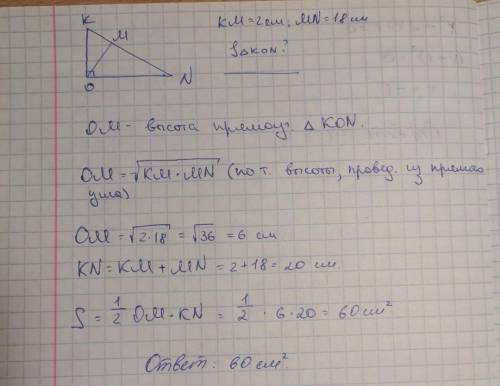 K
M
O
N
KM=2см, MN=18см
S△KON?
OM- высота прямоу. △ KON.
OM=√KM·MN (по т. высоты, провед. из прямого
угла)
OM=√2·18=√36=6 см
KN=KM+MN=2+18=20 см
S=1/2 OM·KN=1/2·6·20=60см²
Ответ: 60см².